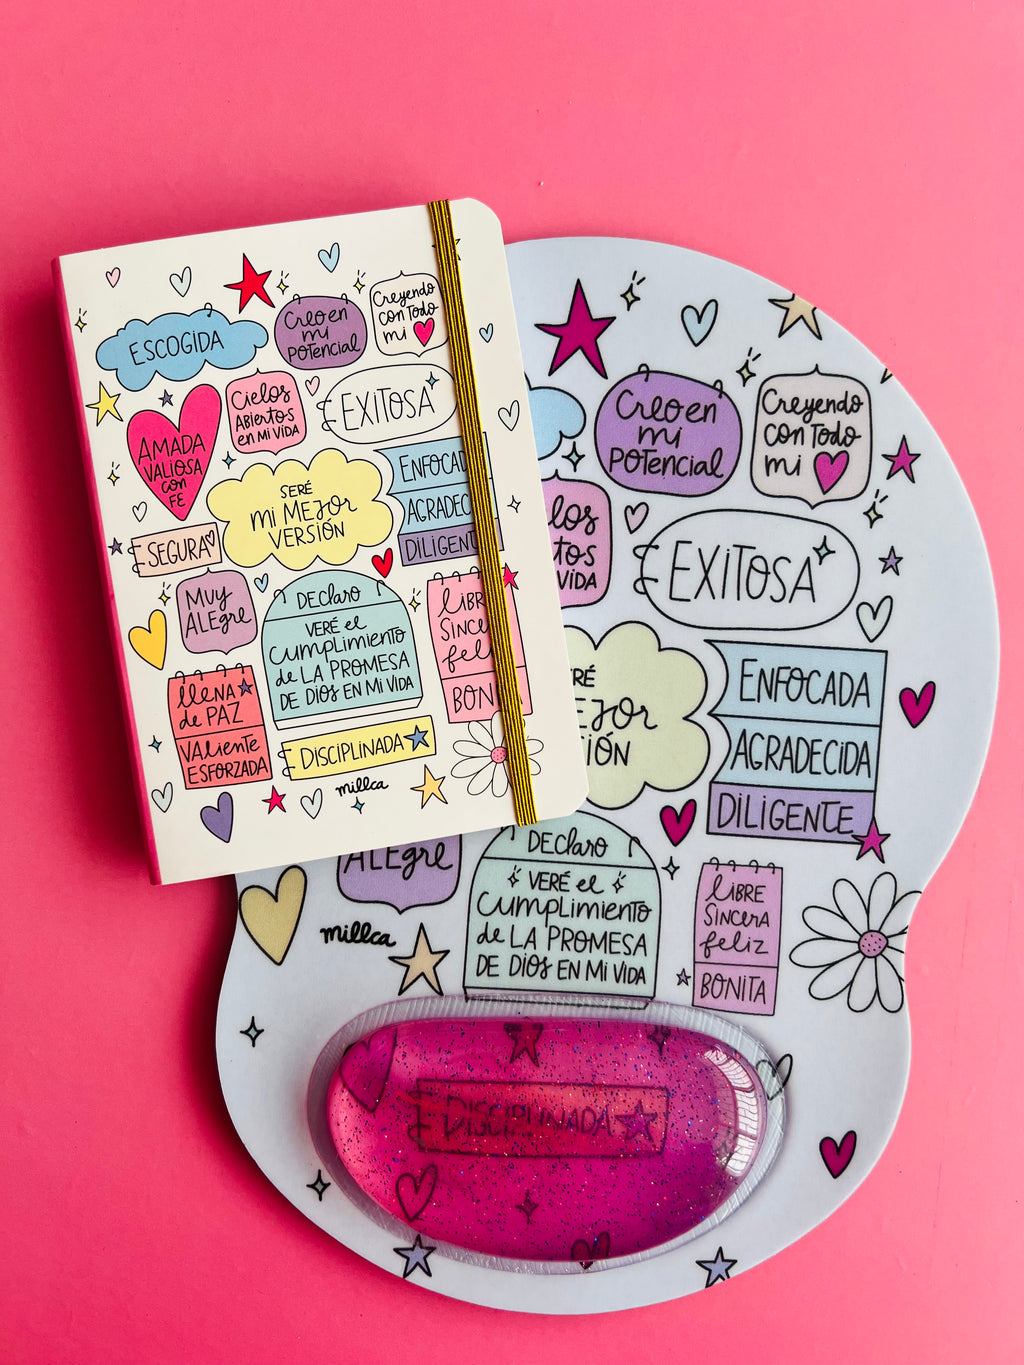 ESCOGIDA
Creo en
mi
POTENCIAL
Creyendo
con Todo
mi
AMADA
VALIOSA
con
FE
Cielos
ABIERTOS
en MI VIDA
EXITOSA
SERÉ
mi MEJOR
VERSIÓN
ENFOCAD
AGRADEC
DILIGENT
SEGURA
MUY
ALEGRE
DEClaro
VERÉ el
CUMPLIMIENTO
de LA PROMESA
DE DIOS EN MI VIDA
LIBR
SINCE
feli
BONI
LLENA
de PAZ
VALIENTE
ESFORZADA
DISCIPLINADA
millca
Creo en
mi
POTENCIAL
Creyendo
con Todo
mi
los
TOS
VIDA
EXITOSA
RÉ
EJOR
IÓN
ENFOCADA
AGRADECIDA
DILIGENTE
ALEGRE
millca
DEClaro
VERÉ el
CUMPLIMIENTO
de LA PROMESA
DE DIOS EN MI VIDA
LIBRE
SINCERA
feliz
BONITA
DISCIPLINADA